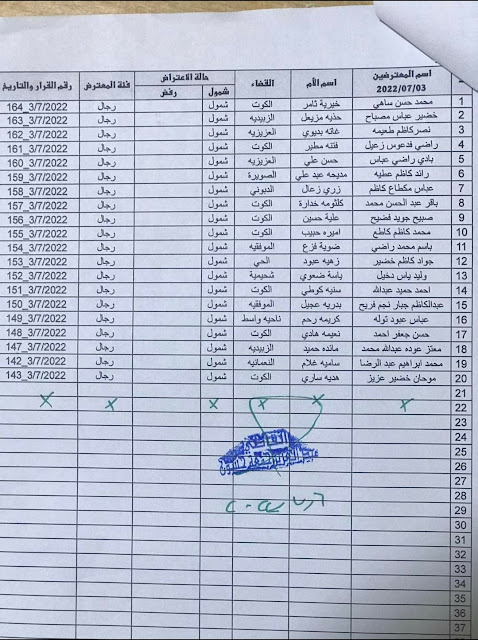 ت اسم المعترضين 2022/07/03 اسم الأم القضاء حالة الاعتراض شمول رفض فئة المعترض رقم القرار والتاريخ
1 محمد حسن ساهي خيرية ثامر الكوت شمول رجال 164_3/7/2022
2 خضير عباس مصباح حذيه مزيعل الزبيديه شمول رجال 163_3/7/2022
3 نصركاظم طعيمه غانه بديوي العزيزيه شمول رجال 162_3/7/2022
4 راضي فدعوس زعيل فتنه مطير الكوت شمول رجال 161_3/7/2022
5 بادي راضي عباس حسن علي العزيزيه شمول رجال 160_3/7/2022
6 رائد كاظم عطيه مديحه عبد علي الصويرة شمول رجال 159_3/7/2022
7 عباس مكطاع كاظم زري زعال الدبوني شمول رجال 158_3/7/2022
8 باقر عبد الحسن محمد كلثومه خدارة الكوت شمول رجال 157_3/7/2022
9 صبيح جويد فضيح علية حسين الكوت شمول رجال 156_3/7/2022
10 محمد كاظم كاطع اميره حبيب الكوت شمول رجال 155_3/7/2022
11 باسم محمد راضي ضوية فزع الموفقيه شمول رجال 154_3/7/2022
12 جواد كاظم خضير زهيه عبود الحي شمول رجال 153_3/7/2022
13 وليد ياس دخيل ياسة ضعوي شحيمية شمول رجال 152_3/7/2022
14 احمد حميد عبدالله سنيه كوطي الكوت شمول رجال 151_3/7/2022
15 عبدالكاظم جبار نجم فريح بدريه عجيل الموفقيه شمول رجال 150_3/7/2022
16 عباس عبود توله كريمه رحم ناحيه واسط شمول رجال 149_3/7/2022
17 حسن جعفر احمد نعيمه هادي الكوت شمول رجال 148_3/7/2022
18 معتز عوده عبدالله محمد مائده حميد الزبيديه شمول رجال 147_3/7/2022
19 محمد ابراهيم عبد الرضا ساميه غلام النعمانيه شمول رجال 142_3/7/2022
20 موحان خضير عزيز هديه ساري الكوت شمول رجال 143_3/7/2022
21
22 x x x x x x
23
24
25
26
27
28
29
30
31
32
33
34
35
36
37